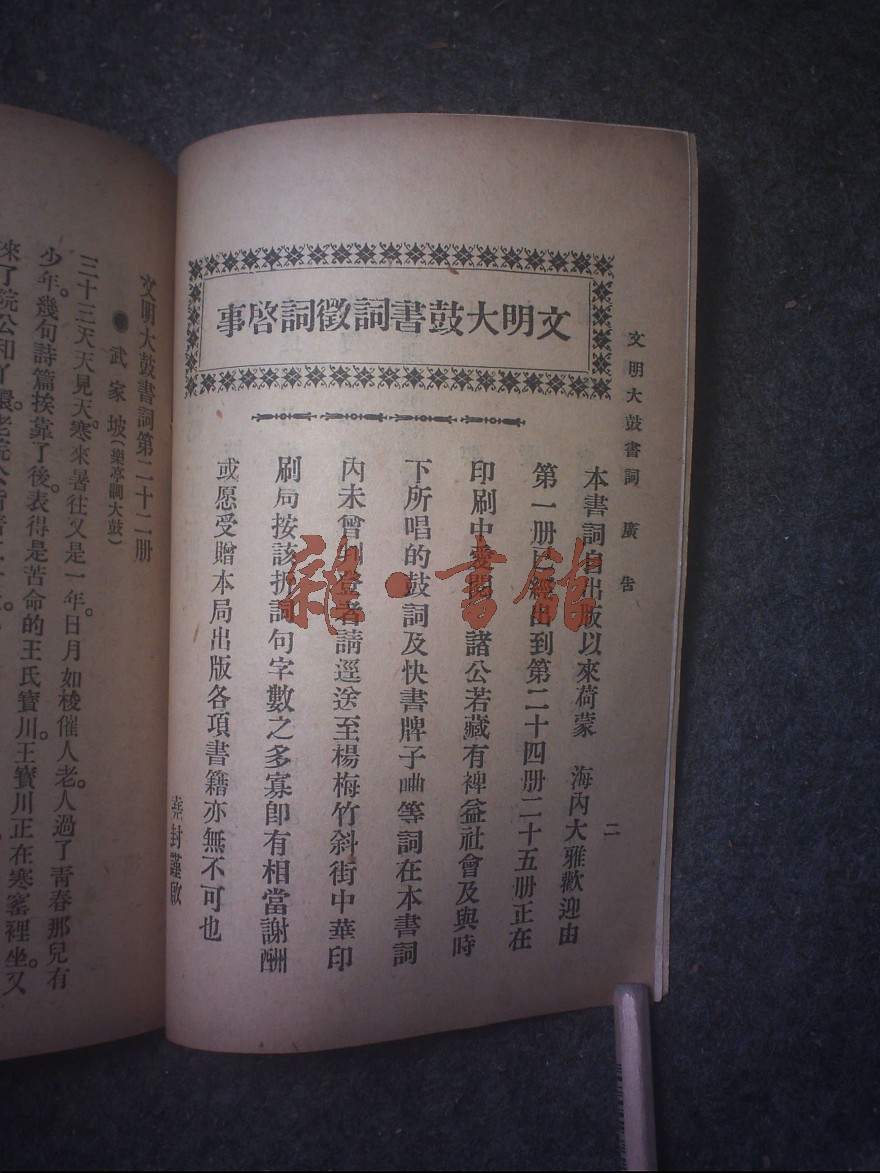 文明大鼓書詞 廣告
二
文明大鼓書詞徵詞啓事
本書詞自出版以來荷蒙 海內大雅歡迎由
第一册已經出到第二十四册二十五册正在
印刷中愛閱 諸公若藏有裨益社會及與時
下所唱的鼓詞及快書牌子曲等詞在本書詞
內未曾刋登者請逕送至楊梅竹斜街中華印
刷局按該折詞句字數之多寡卽有相當謝酬
或愿受贈本局出版各項書籍亦無不可也
堯封謹啟
雜·書館
文明大鼓書詞第二十二册
●武家坡(樂亭調大鼓)
三十三天天見天。寒來暑往又是一年。日月如梭催人老。人過了靑春那兒有
少年。幾句詩篇挨靠了後。表得是苦命的王氏寶川。王寶川正在寒窰裡坐。又
來了院公和丫環。老院公